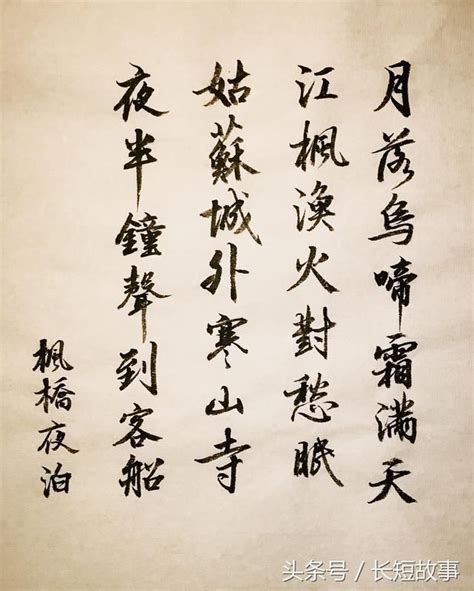 月落烏啼霜滿天
江楓漁火對愁眠
姑蘇城外寒山寺
夜半鐘聲到客船
楓橋夜泊
头条号／长短故事